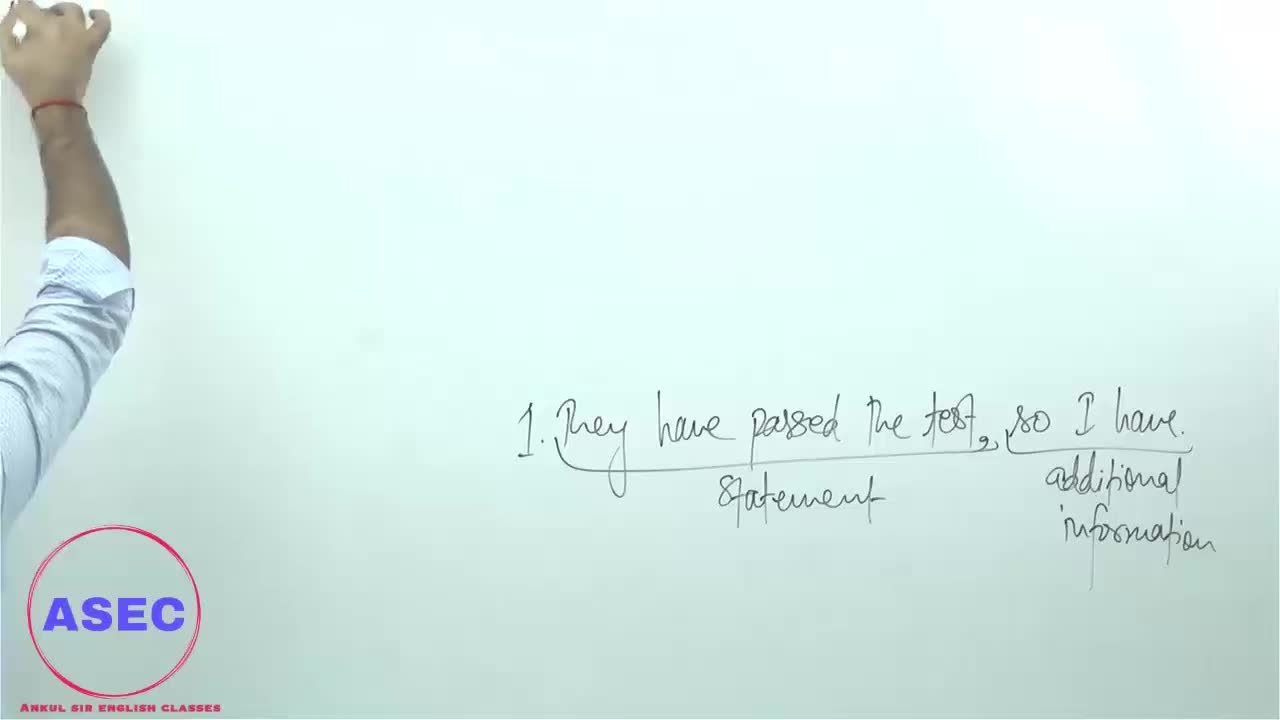 1. They have passed the test, so I have.
statement
additional
information
ASEC
ANKUL SIR ENGLISH CLASSES